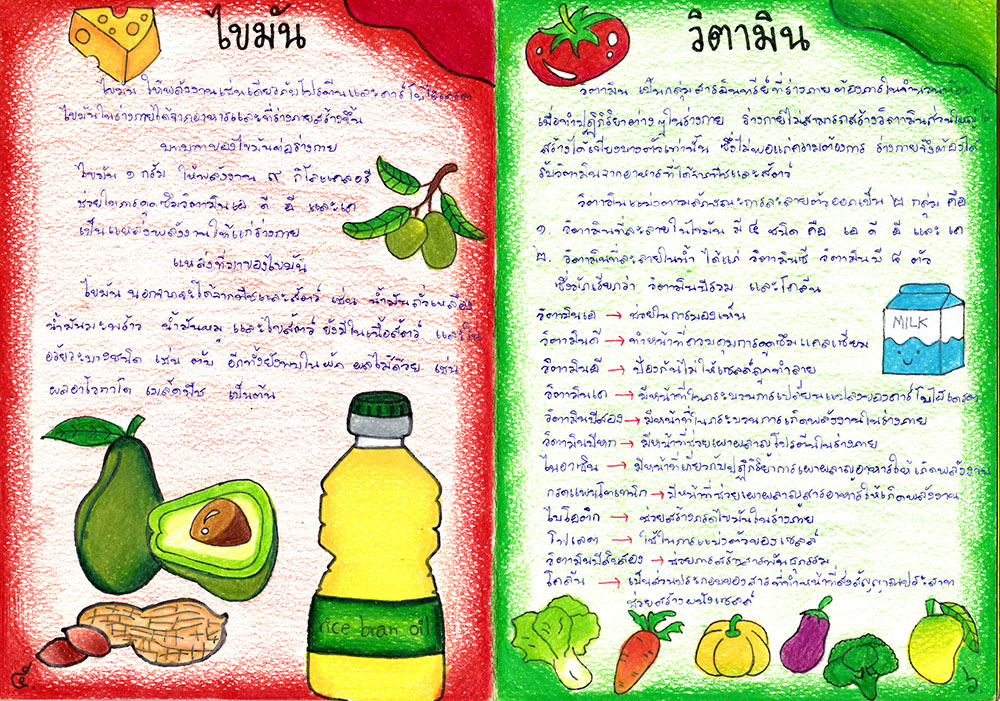 ไขมัน
ไขมัน ให้พลังงานเช่นเดียวกับโปรตีนและคาร์โบไฮเดรต
ไขมันในร่างกายได้จากอาหารและที่ร่างกายสร้างขึ้น
บทบาทของไขมันต่อร่างกาย
ไขมัน ๑ กรัม ให้พลังงาน ๙ กิโลแคลอรี
ช่วยในการดูดซึมวิตามินเอ ดี อี และเค
เป็นแหล่งพลังงานให้แก่ร่างกาย
แหล่งที่มาของไขมัน
ไขมัน นอกจากจะได้จากพืชและสัตว์ เช่น น้ำมันถั่วเหลือง
น้ำมันมะพร้าว น้ำมันหมู และไขสัตว์ ยังมีในเนื้อสัตว์ และใน
อวัยวะบางชนิด เช่น ตับ อีกทั้งยังพบในผัก ผลไม้ด้วย เช่น
ผลอาโวกาโด เมล็ดพืช เป็นต้น
rice bran oil
๕.
วิตามิน
วิตามิน เป็นกลุ่มสารอินทรีย์ที่ร่างกายต้องการในจำนวนน้อย
เพื่อทำปฏิกิริยาต่างๆในร่างกาย ร่างกายไม่สามารถสร้างวิตามินส่วนใหญ่
สร้างได้เพียงบางตัวเท่านั้น ซึ่งไม่พอแก่ความต้องการ ร่างกายจึงต้องได้
รับวิตามินจากอาหารที่ได้จากพืชและสัตว์
วิตามินแบ่งตามลักษณะการละลายตัวออกเป็น ๒ กลุ่ม คือ
๑. วิตามินที่ละลายในไขมัน มี ๔ ชนิด คือ เอ ดี อี และ เค
๒. วิตามินที่ละลายในน้ำ ได้แก่ วิตามินซี วิตามินบี ๘ ตัว
ซึ่งมักเรียกว่า วิตามินบีรวม และโคลีน
MILK
วิตามินเอ → ช่วยในการมองเห็น
วิตามินดี → ทำหน้าที่ควบคุมการดูดซึมแคลเซียม
วิตามินอี → ป้องกันไม่ให้เซลล์ถูกทำลาย
วิตามินเค → มีหน้าที่ในกระบวนการเปลี่ยนแปลงของคาร์โบไฮเดรต
วิตามินบีสอง → มีหน้าที่ในกระบวนการเกิดพลังงานในร่างกาย
วิตามินบีหก → มีหน้าที่ช่วยเผาผลาญโปรตีนในร่างกาย
ไนอาซิน → มีหน้าที่เกี่ยวกับปฏิกิริยาการเผาผลาญอาหารให้เกิดพลังงาน
กรดแพนโตเทนิก → มีหน้าที่ช่วยเผาผลาญสารอาหารให้เกิดพลังงาน
ไบโอติก → ช่วยสร้างกรดไขมันในร่างกาย
โฟเลต → ใช้ในการแบ่งตัวของเซลล์
วิตามินบีสิบสอง → ช่วยการสร้างสารพันธุกรรม
โคลีน → เป็นส่วนประกอบของสารที่ทำหน้าที่ส่งสัญญาณประสาท
ช่วยสร้างผนังเซลล์
๖.